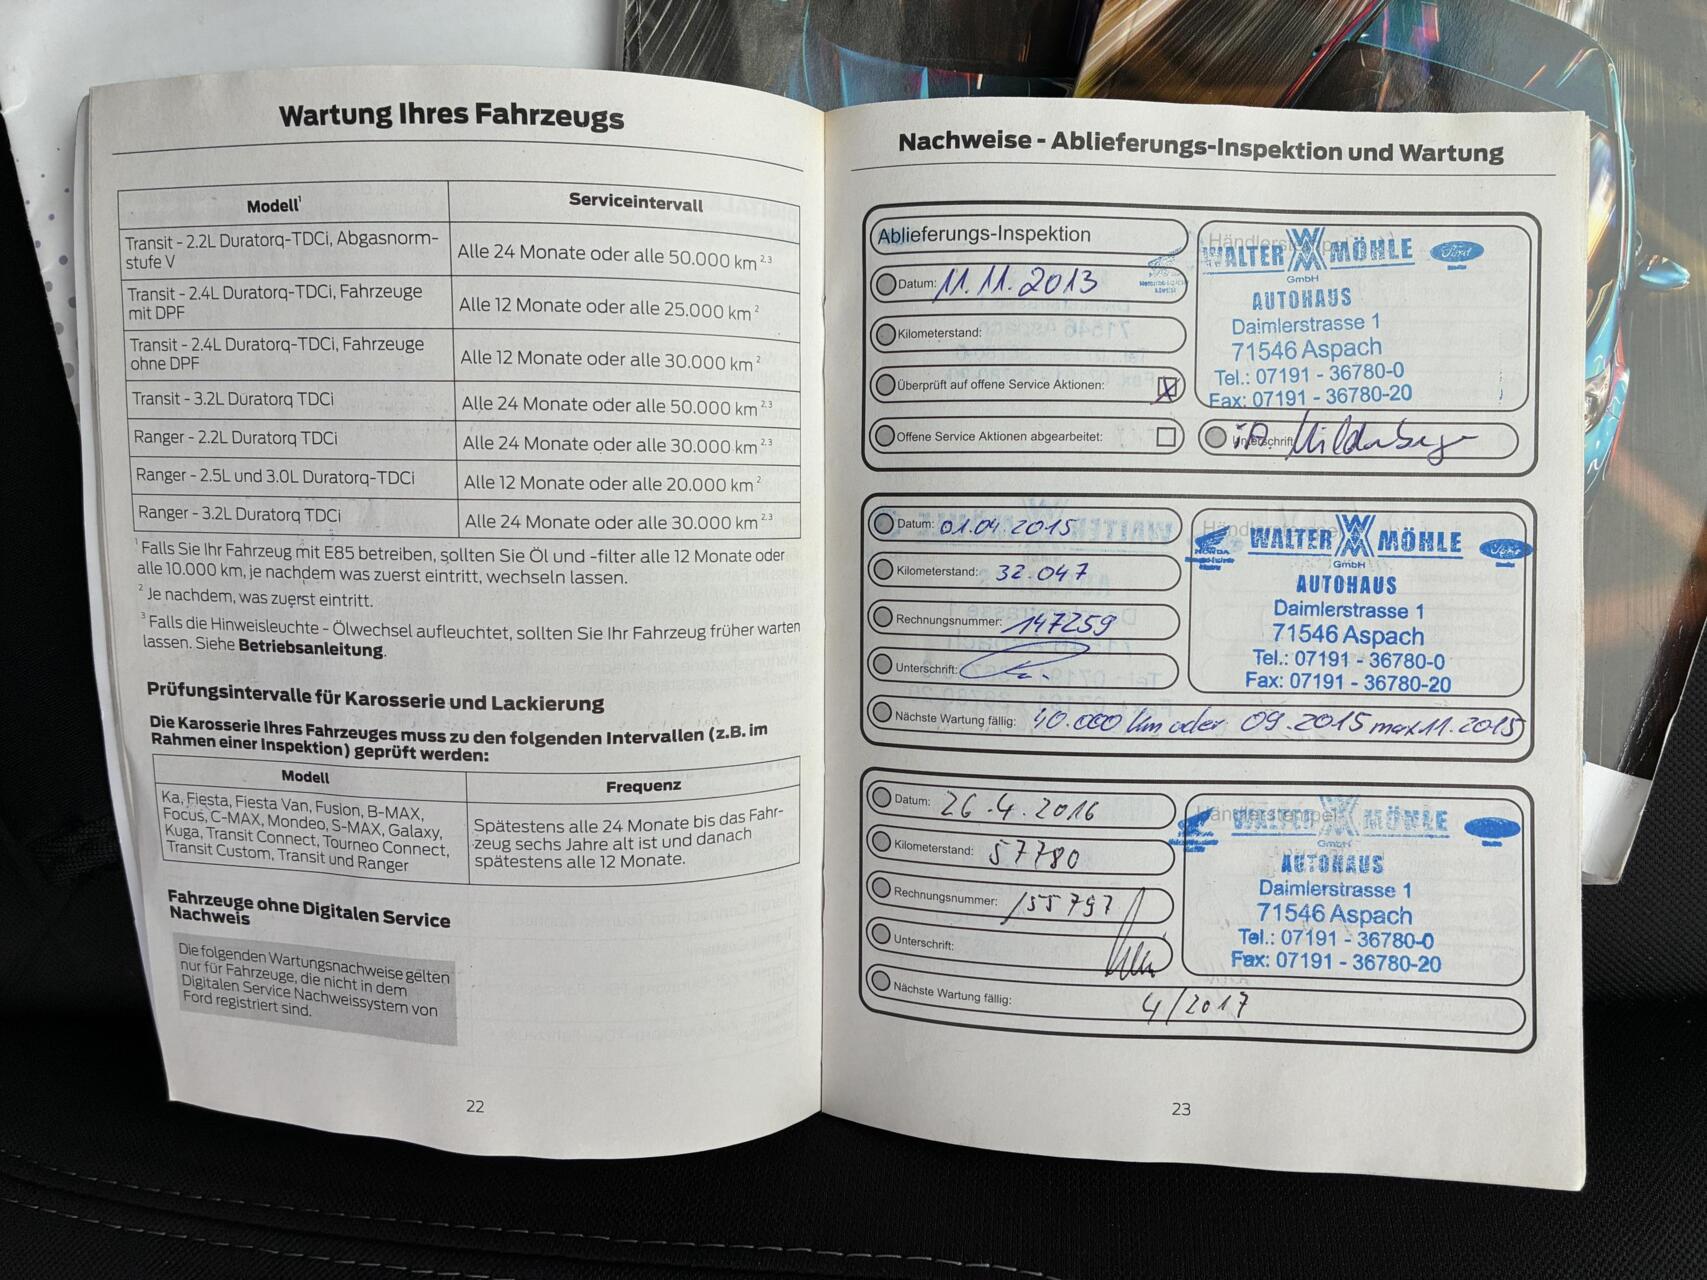 Wartung Ihres Fahrzeugs
Modell¹
Serviceintervall
Transit - 2.2L Duratorq-TDCi, Abgasnorm-
stufe V
Alle 24 Monate oder alle 50.000 km 2,3
Transit - 2.4L Duratorq-TDCi, Fahrzeuge
mit DPF
Alle 12 Monate oder alle 25.000 km 2
Transit - 2.4L Duratorq-TDCi, Fahrzeuge
ohne DPF
Alle 12 Monate oder alle 30.000 km 2
Transit - 3.2L Duratorq TDCi
Alle 24 Monate oder alle 50.000 km 2,3
Ranger - 2.2L Duratorq TDCi
Alle 24 Monate oder alle 30.000 km 2,3
Ranger - 2.5L und 3.0L Duratorq-TDCi
Alle 12 Monate oder alle 20.000 km 2
Ranger - 3.2L Duratorq TDCi
Alle 24 Monate oder alle 30.000 km 2,3
¹ Falls Sie Ihr Fahrzeug mit E85 betreiben, sollten Sie Öl und -filter alle 12 Monate oder
alle 10.000 km, je nachdem was zuerst eintritt, wechseln lassen.
² Je nachdem, was zuerst eintritt.
³ Falls die Hinweisleuchte - Ölwechsel aufleuchtet, sollten Sie Ihr Fahrzeug früher warten
lassen. Siehe Betriebsanleitung.
Prüfungsintervalle für Karosserie und Lackierung
Die Karosserie Ihres Fahrzeuges muss zu den folgenden Intervallen (z.B. im
Rahmen einer Inspektion) geprüft werden:
Modell
Frequenz
Ka, Fiesta, Fiesta Van, Fusion, B-MAX,
Focus, C-MAX, Mondeo, S-MAX, Galaxy,
Kuga, Transit Connect, Tourneo Connect,
Transit Custom, Transit und Ranger
Spätestens alle 24 Monate bis das Fahr-
zeug sechs Jahre alt ist und danach
spätestens alle 12 Monate.
Fahrzeuge ohne Digitalen Service
Nachweis
Die folgenden Wartungsnachweise gelten
nur für Fahrzeuge, die nicht in dem
Digitalen Service Nachweissystem von
Ford registriert sind.
22
Nachweise - Ablieferungs-Inspektion und Wartung
Ablieferungs-Inspektion
Datum: 11.11.2013
Kilometerstand:
Überprüft auf offene Service Aktionen: X
Offene Service Aktionen abgearbeitet:
Händlerstempel
WALTER MÖHLE Ford
GmbH
AUTOHAUS
Daimlerstrasse 1
71546 Aspach
Tel.: 07191 - 36780-0
Fax: 07191 - 36780-20
Unterschrift
Datum: 01.04.2015
Kilometerstand: 32.047
Rechnungsnummer: 147259
Unterschrift:
Nächste Wartung fällig: 40.000 km oder 09.2015 max 11.2015
Händlerstempel
HONDA WALTER MÖHLE Ford
GmbH
AUTOHAUS
Daimlerstrasse 1
71546 Aspach
Tel.: 07191 - 36780-0
Fax: 07191 - 36780-20
Datum: 26.4.2016
Kilometerstand: 57780
Rechnungsnummer: 155797
Unterschrift:
Nächste Wartung fällig: 4/2017
Händlerstempel
WALTER MÖHLE
GmbH
AUTOHAUS
Daimlerstrasse 1
71546 Aspach
Tel.: 07191 - 36780-0
Fax: 07191 - 36780-20
23